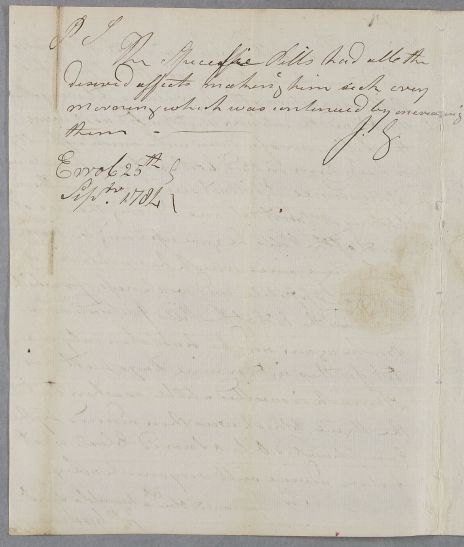 P S
The Speceffic Pills had all the
desired affects making him sick every
morning which was continued by increasing
them
J. G
Errol 25th
Sepr. 1784